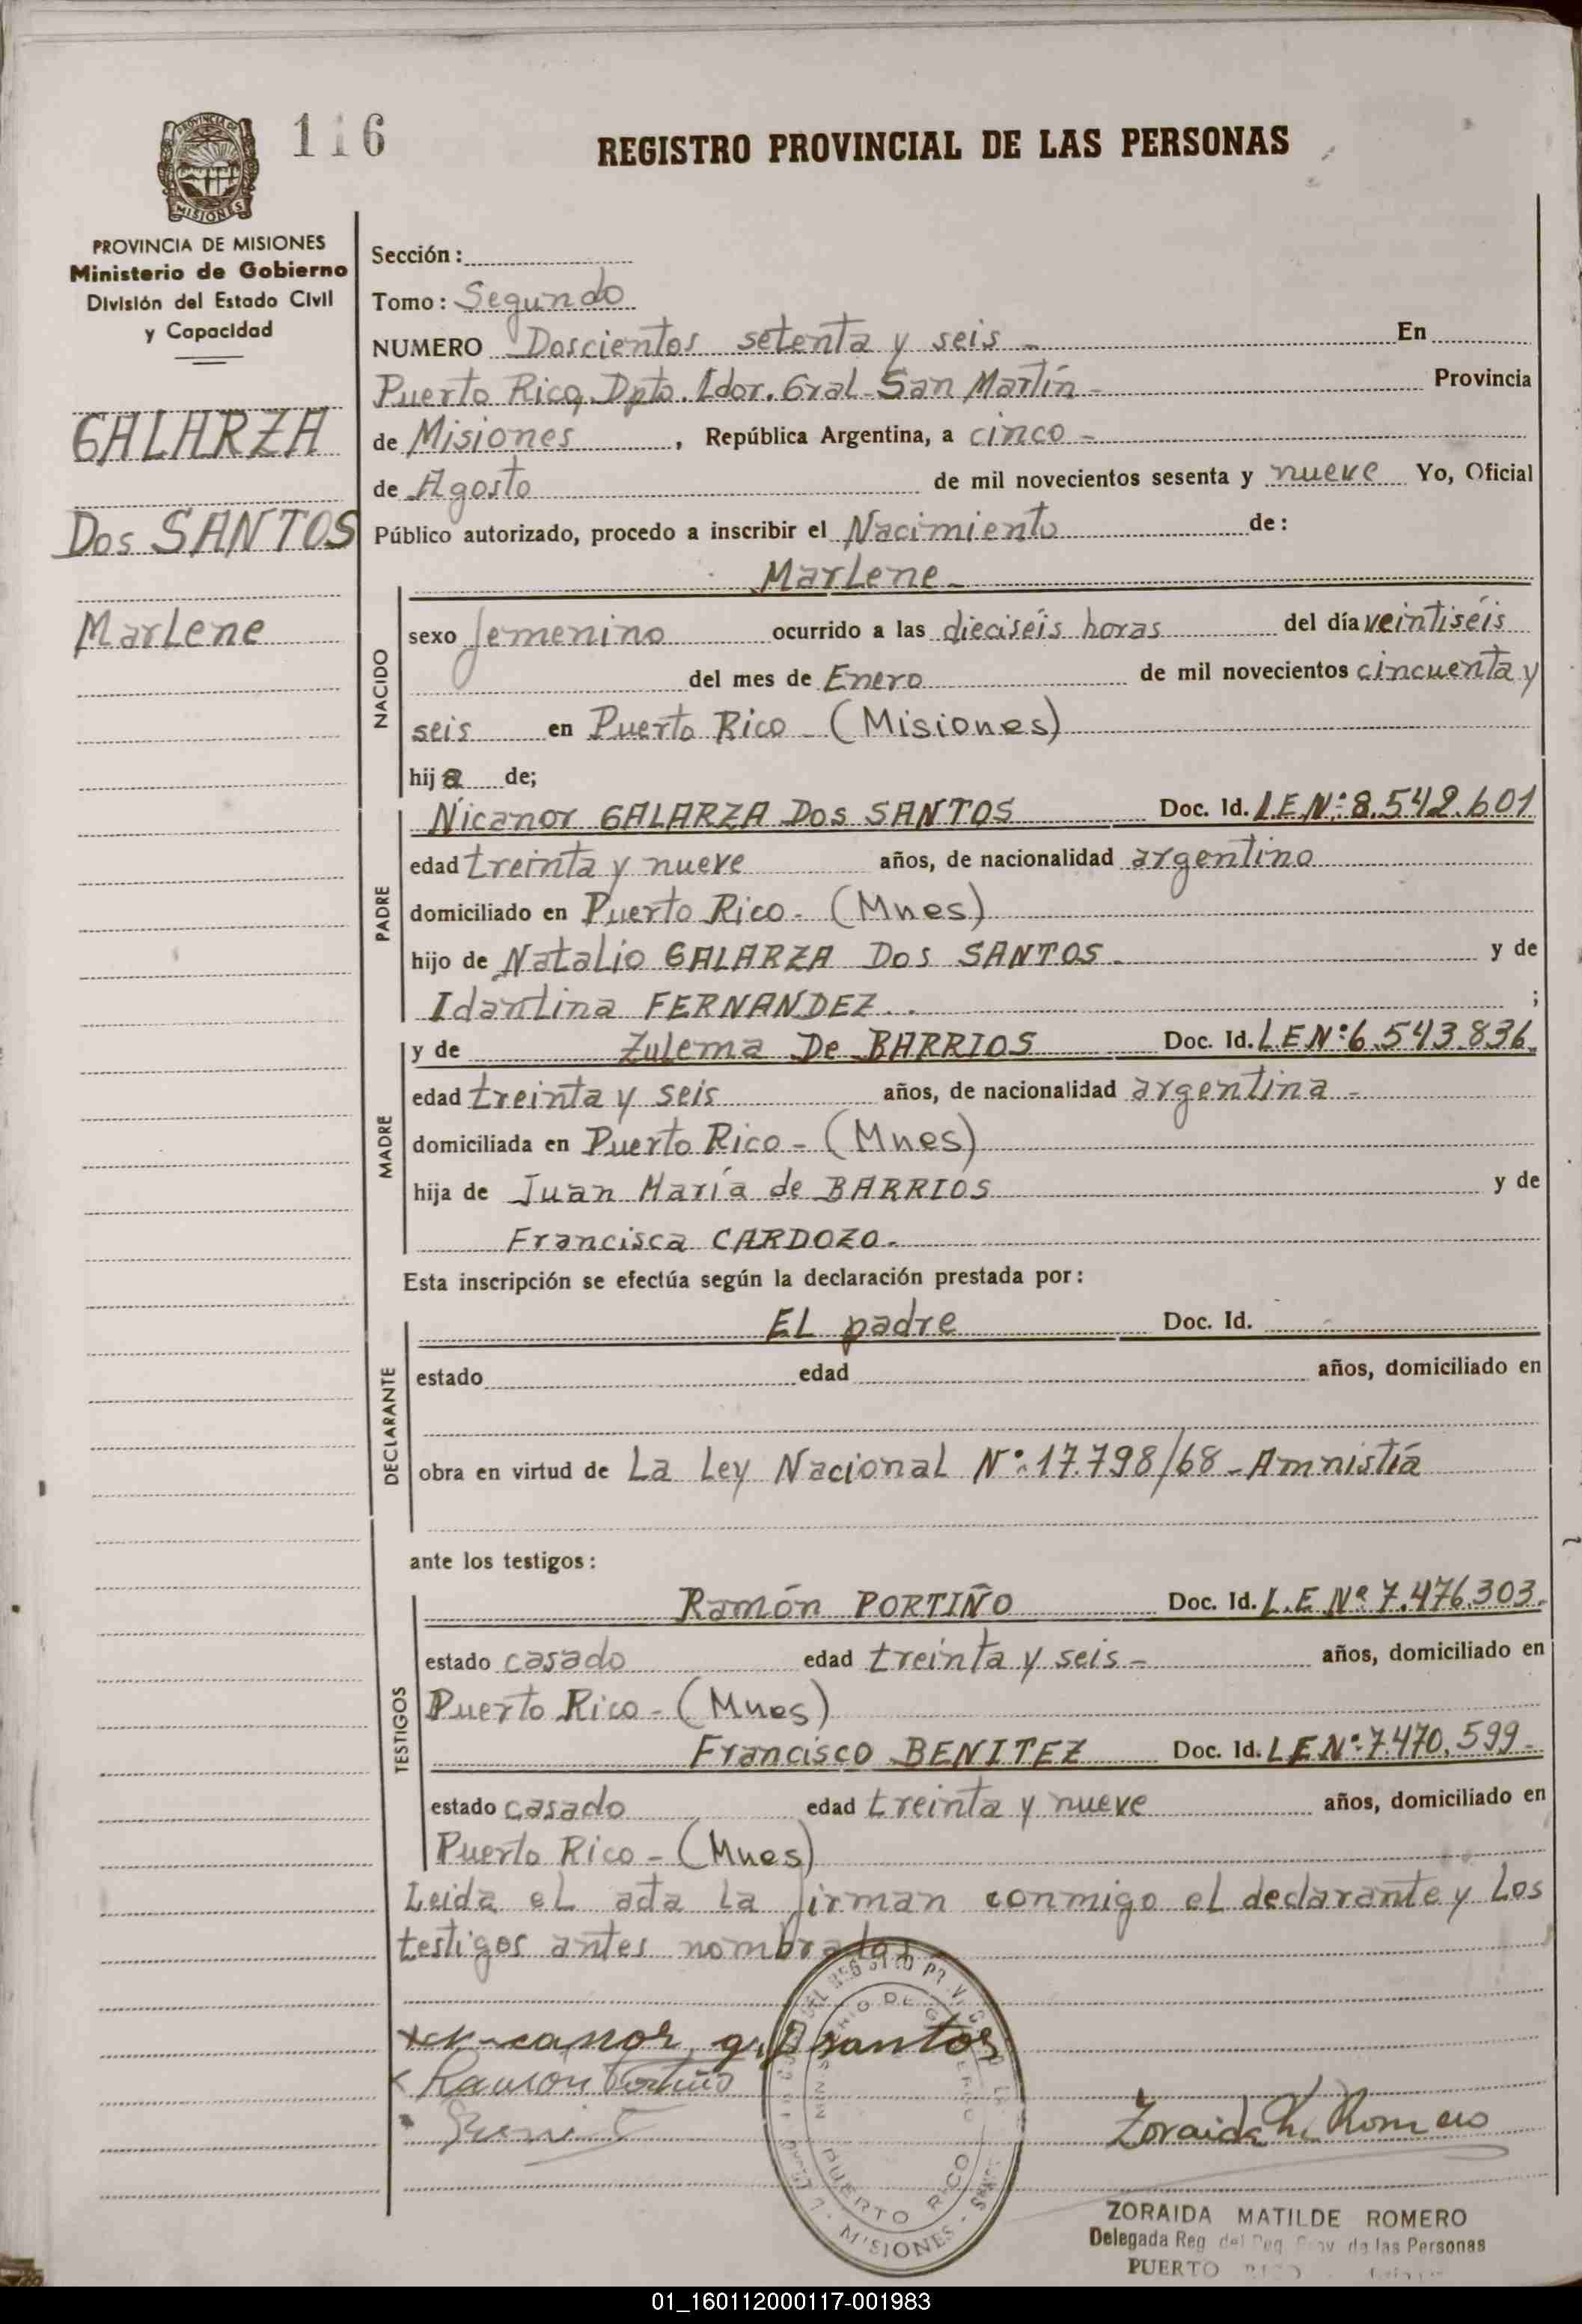 116
REGISTRO PROVINCIAL DE LAS PERSONAS
PROVINCIA DE
MISIONES
PROVINCIA DE MISIONES
Ministerio de Gobierno
División del Estado Civil
y Capacidad
GALARZA
Dos SANTOS
Marlene
Sección:
Tomo: Segundo
NUMERO Doscientos setenta y seis - En
Puerto Rico, Dpto. Ldor. Gral. San Martín - Provincia
de Misiones, República Argentina, a cinco -
de Agosto de mil novecientos sesenta y nueve Yo, Oficial
Público autorizado, procedo a inscribir el Nacimiento de:
Marlene -
NACIDO
sexo femenino ocurrido a las dieciséis horas del día veintiséis
del mes de Enero de mil novecientos cincuenta y
seis en Puerto Rico - (Misiones)
hija de;
PADRE
Nicanor GALARZA Dos SANTOS Doc. Id. L.E.Nº: 8.542.601
edad treinta y nueve años, de nacionalidad argentino
domiciliado en Puerto Rico - (Mnes)
hijo de Natalio GALARZA Dos SANTOS - y de
Idantina FERNANDEZ. . ;
MADRE
y de Zulema De BARRIOS Doc. Id. L.E.Nº: 6.543.836
edad treinta y seis años, de nacionalidad argentina -
domiciliada en Puerto Rico - (Mnes)
hija de Juan María de BARRIOS y de
Francisca CARDOZO.
Esta inscripción se efectúa según la declaración prestada por:
DECLARANTE
EL padre Doc. Id. -
estado edad años, domiciliado en
obra en virtud de La Ley Nacional Nº: 17.798/68 - Amnistía
ante los testigos:
TESTIGOS
Ramón PORTIÑO Doc. Id. L.E Nº 7.476.303.
estado casado edad treinta y seis - años, domiciliado en
Puerto Rico - (Mnes)
Francisco BENITEZ Doc. Id. L.E Nº: 7.470.599 -
estado casado edad treinta y nueve años, domiciliado en
Puerto Rico - (Mnes)
Leida el acta la firman conmigo el declarante y los
testigos antes nombrados
Ramón Portiño
Zoraida M. Romero
PUERTO RICO
MISIONES
ZORAIDA MATILDE ROMERO
Delegada Reg del Reg. Prov de las Personas
PUERTO RICO
01_160112000117-001983